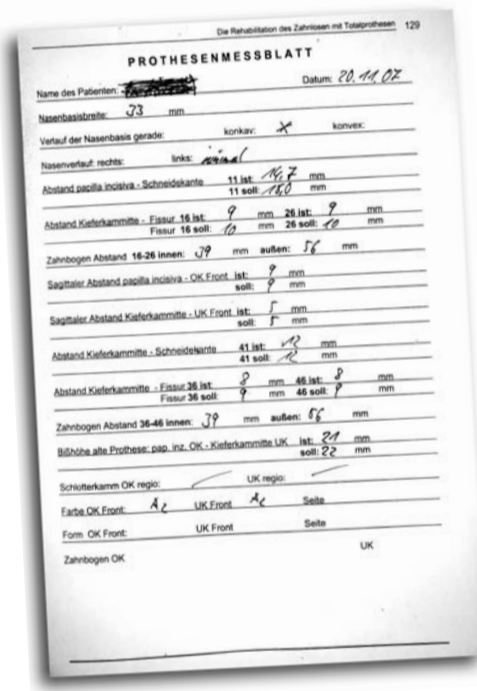 Die Rehabilitation des Zahnlosen mit Totalprothesen 129
PROTHESENMESSBLATT
Name des Patienten: Datum: 20.11.07
Nasenbasisbreite: 33 mm
Verlauf der Nasenbasis gerade: konkav: X konvex:
Nasenverlauf: rechts: links:
Abstand papilla incisiva - Schneidekante 11 ist: 14,7 mm
11 soll: 15,0 mm
Abstand Kieferkammitte - Fissur 16 ist: 9 mm 26 ist: 9 mm
Fissur 16 soll: 10 mm 26 soll: 10 mm
Zahnbogen Abstand 16-26 innen: 39 mm außen: 56 mm
Sagittaler Abstand papilla incisiva - OK Front ist: 9 mm
soll: 9 mm
Sagittaler Abstand Kieferkammitte - UK Front ist: 5 mm
soll: 5 mm
Abstand Kieferkammitte - Schneidekante 41 ist: 12 mm
41 soll: 12 mm
Abstand Kieferkammitte - Fissur 36 ist: 8 mm 46 ist: 8 mm
Fissur 36 soll: 9 mm 46 soll: 9 mm
Zahnbogen Abstand 36-46 innen: 39 mm außen: 56 mm
Bißhöhe alte Prothese: pap. inz. OK - Kieferkammitte UK ist: 21 mm
soll: 22 mm
Schlotterkamm OK regio: UK regio:
Farbe OK Front: A2 UK Front A2 Seite
Form OK Front: UK Front Seite
Zahnbogen OK UK